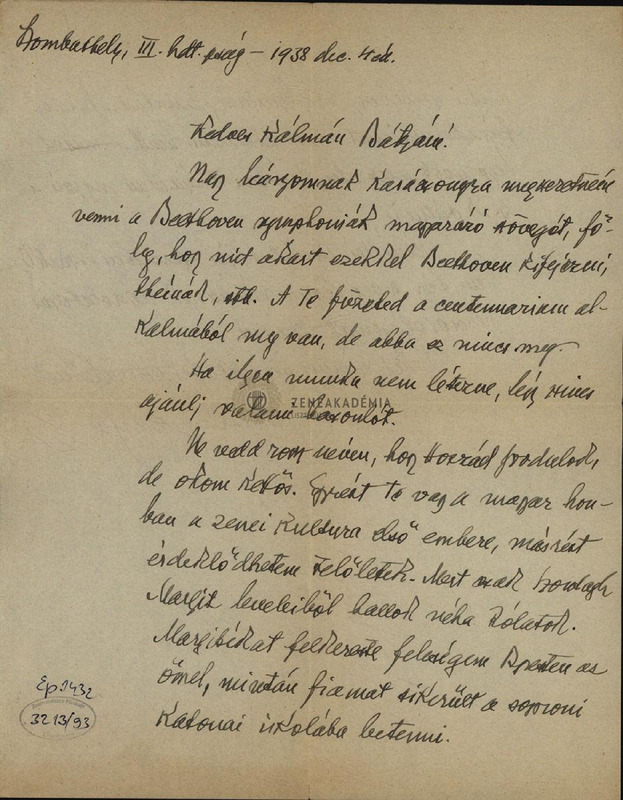 Szombathely, III. hdt. pság – 1938 dec. 4én.
Kedves Kálmán Bátyám!
Nagy leányomnak karácsonyra megszeretném
venni a Beethoven symphoniák magyarázó szövegét, fő-
leg, hogy mit akart ezekkel Beethoven kifejezni,
témák, stb. A Te füzeted a centennarium al-
kalmából meg van, de abba ez nincs meg.
Ha ilyen munka nem létezne, légy szives
ajánlj valami hasonlót.
ZENEAKADÉMIA
Ne vedd rossz néven, hogy Hozzád fordulok,
de okom kettős. Egyrészt Te vagy a magyar hon-
ban a zenei kultura első embere, másrészt
érdeklődhetem Felőletek. Mert csak
Margit leveleiből hallok néha Rólatok.
Margitékat felkereste feleségem Pesten az
ősszel, miután fiamat sikerült a soproni
katonai iskolába betenni.
Ep. 1432
3213/93